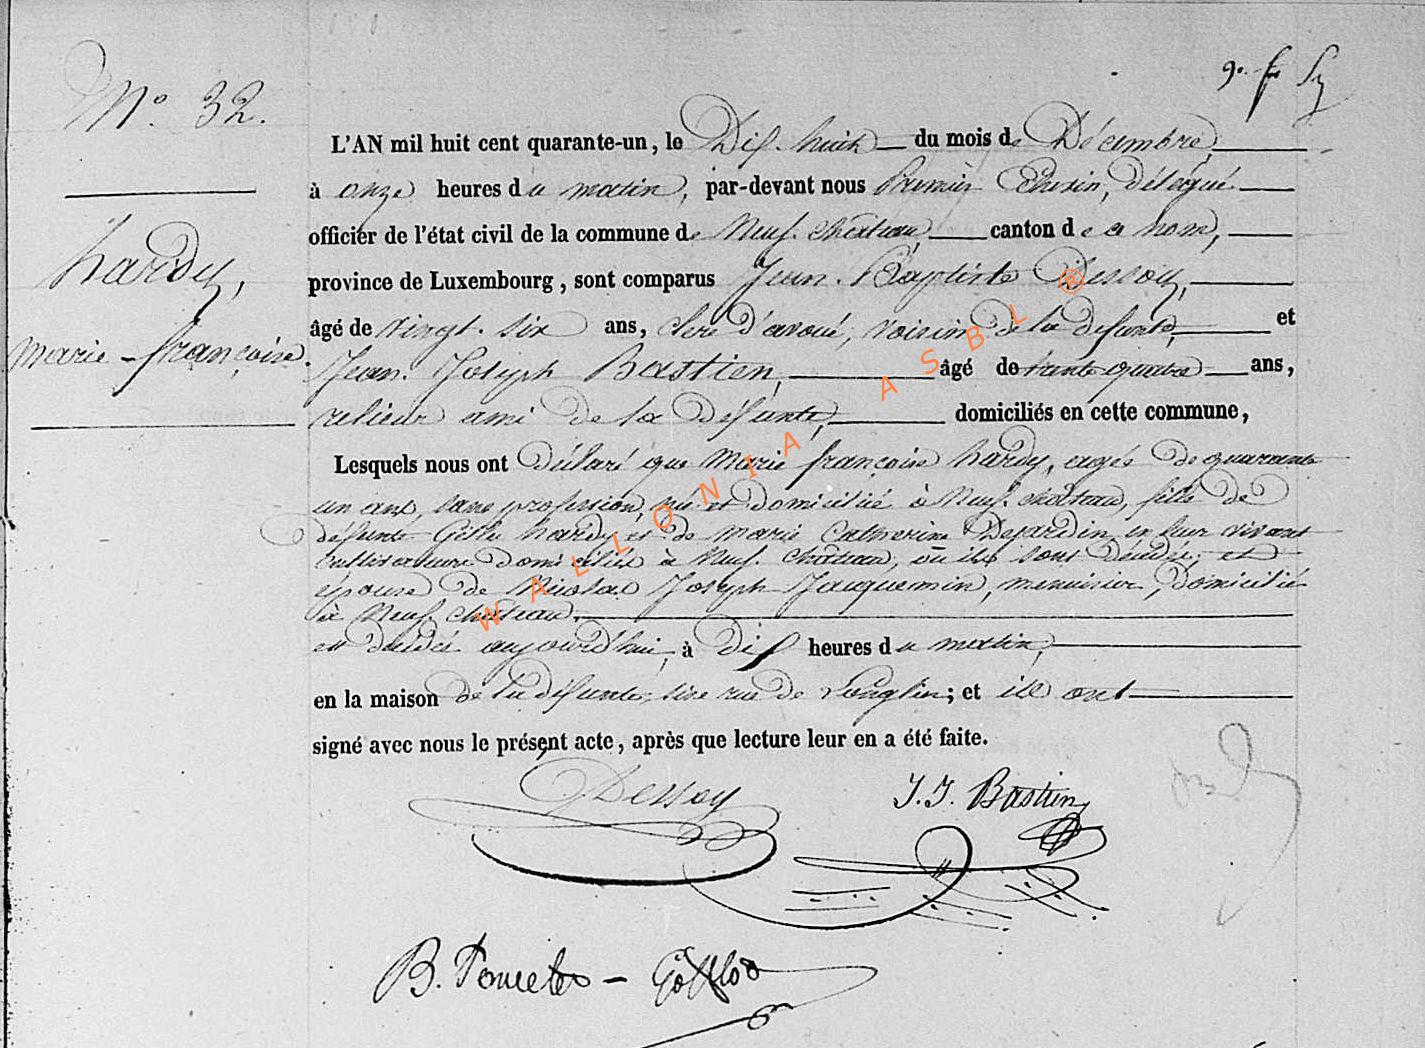 N° 32.
L'AN mil huit cent quarante-un, le Dix-huit du mois de Décembre,
à onze heures du matin, par-devant nous Premier Echevin, Délégué
officier de l'état civil de la commune de Neufchâteau, canton de ce nom,
Hardy,
province de Luxembourg, sont comparus Jean-Baptiste Dessoy,
âgé de vingt-six ans, clerc d'avoué, voisin de la défunte, et
Marie-françoise.
Jean Joseph Bastien, âgé de trente quatre ans,
relieur ami de la défunte, domiciliés en cette commune,
Lesquels nous ont déclaré que Marie françoise hardy, agée de quarante
un ans, sans profession, née et domiciliée à Neufchâteau, fille de
défunts Gille hardy et de marie Catherine Dejardin, en leur vivant
cultivateurs domiciliés à Neufchâteau, où ils sont décédés, et
épouse de Nicolas Joseph Jacquemin, menuisier, domicilié
à Neufchâteau,
est décédée aujourd'hui, à Dix heures du matin,
en la maison de la défunte, sise rue de Longlier; et ils ont
signé avec nous le présent acte, après que lecture leur en a été faite.
Dessoy
J. J. Bastien
B. Poncelet
WALLONIA ASBL ®